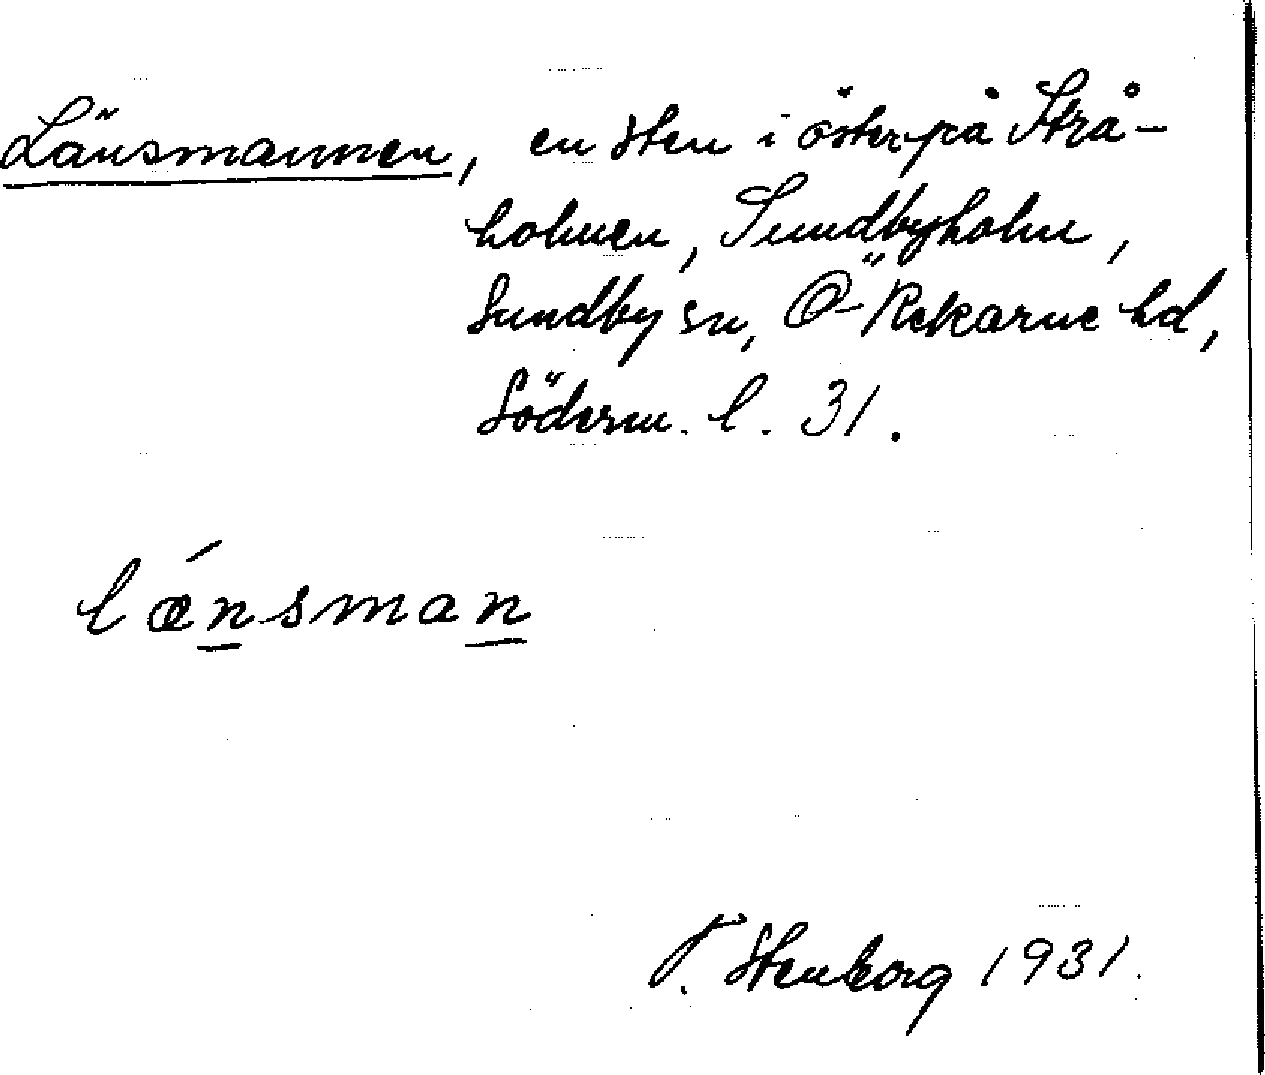 Länsmannen, en sten i öster på Strå-
holmen, Sundbyholm,
Sundby sn, Ö-Rekarne hd,
Söderm. l. 31.
lǽnsman
T. Stenborg 1931.